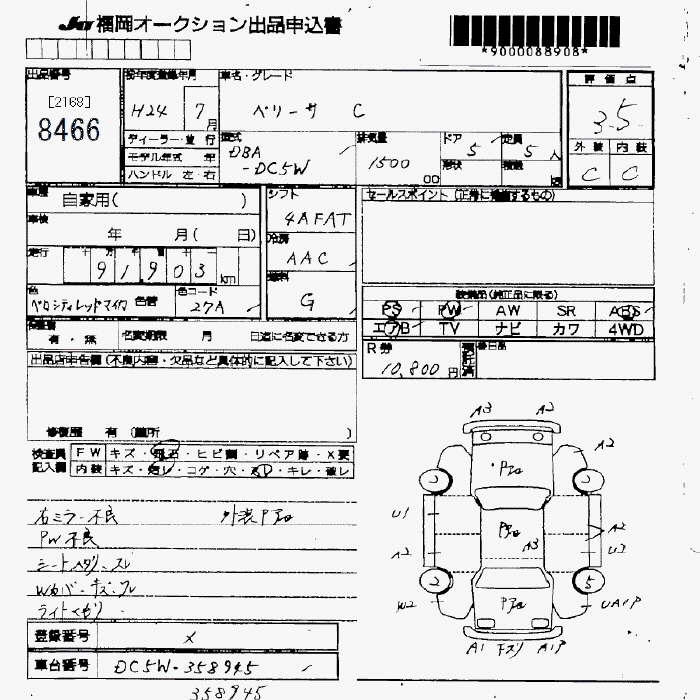 JU 福岡オークション出品申込書
*9000088908*
出品番号
[2168]
8466
初年度登録年月
H24 7月
車名・グレード
ベリーサ C
評価点
3.5
外装 内装
C C
ディーラー・並行
モデル年式 年
ハンドル 左・右
型式
DBA
-DC5W
排気量
1500
ドア 5
形状
定員 5人
積載
車歴
自家用( )
車検
年 月( 日)
走行
91,903 km
シフト
4AFAT
冷房
AAC
燃料
G
色
ベロシティレッドマイカ 色替
色コード
27A
セールスポイント (正常に稼働するもの)
装備品(純正品に限る)
PS PW AW SR ABS
エアB TV ナビ カワ 4WD
有・無 名変期限 月 日迄に名変できる方
R券
10,800円
出品店申告欄(不具合内容・欠品など具体的に記入して下さい)
修復歴 有 (箇所 )
検査員記入欄
FW キズ・飛石・ヒビ割・リペア跡・X要
内装 キズ・コゲ・穴・キレ・破レ
右ミラー不良 外装Pアロ
PW不良
シートヘタリ・スレ
Wカバーキズ・スレ
ライトくもり
登録番号 X
車台番号 DC5W-358945
358945
A3 A2
A2
Pアロ
U1
A2
Pアロ
A3
A2
U2
2
2
5
W2
Pアロ
UA1P
A1 下スリ A1P